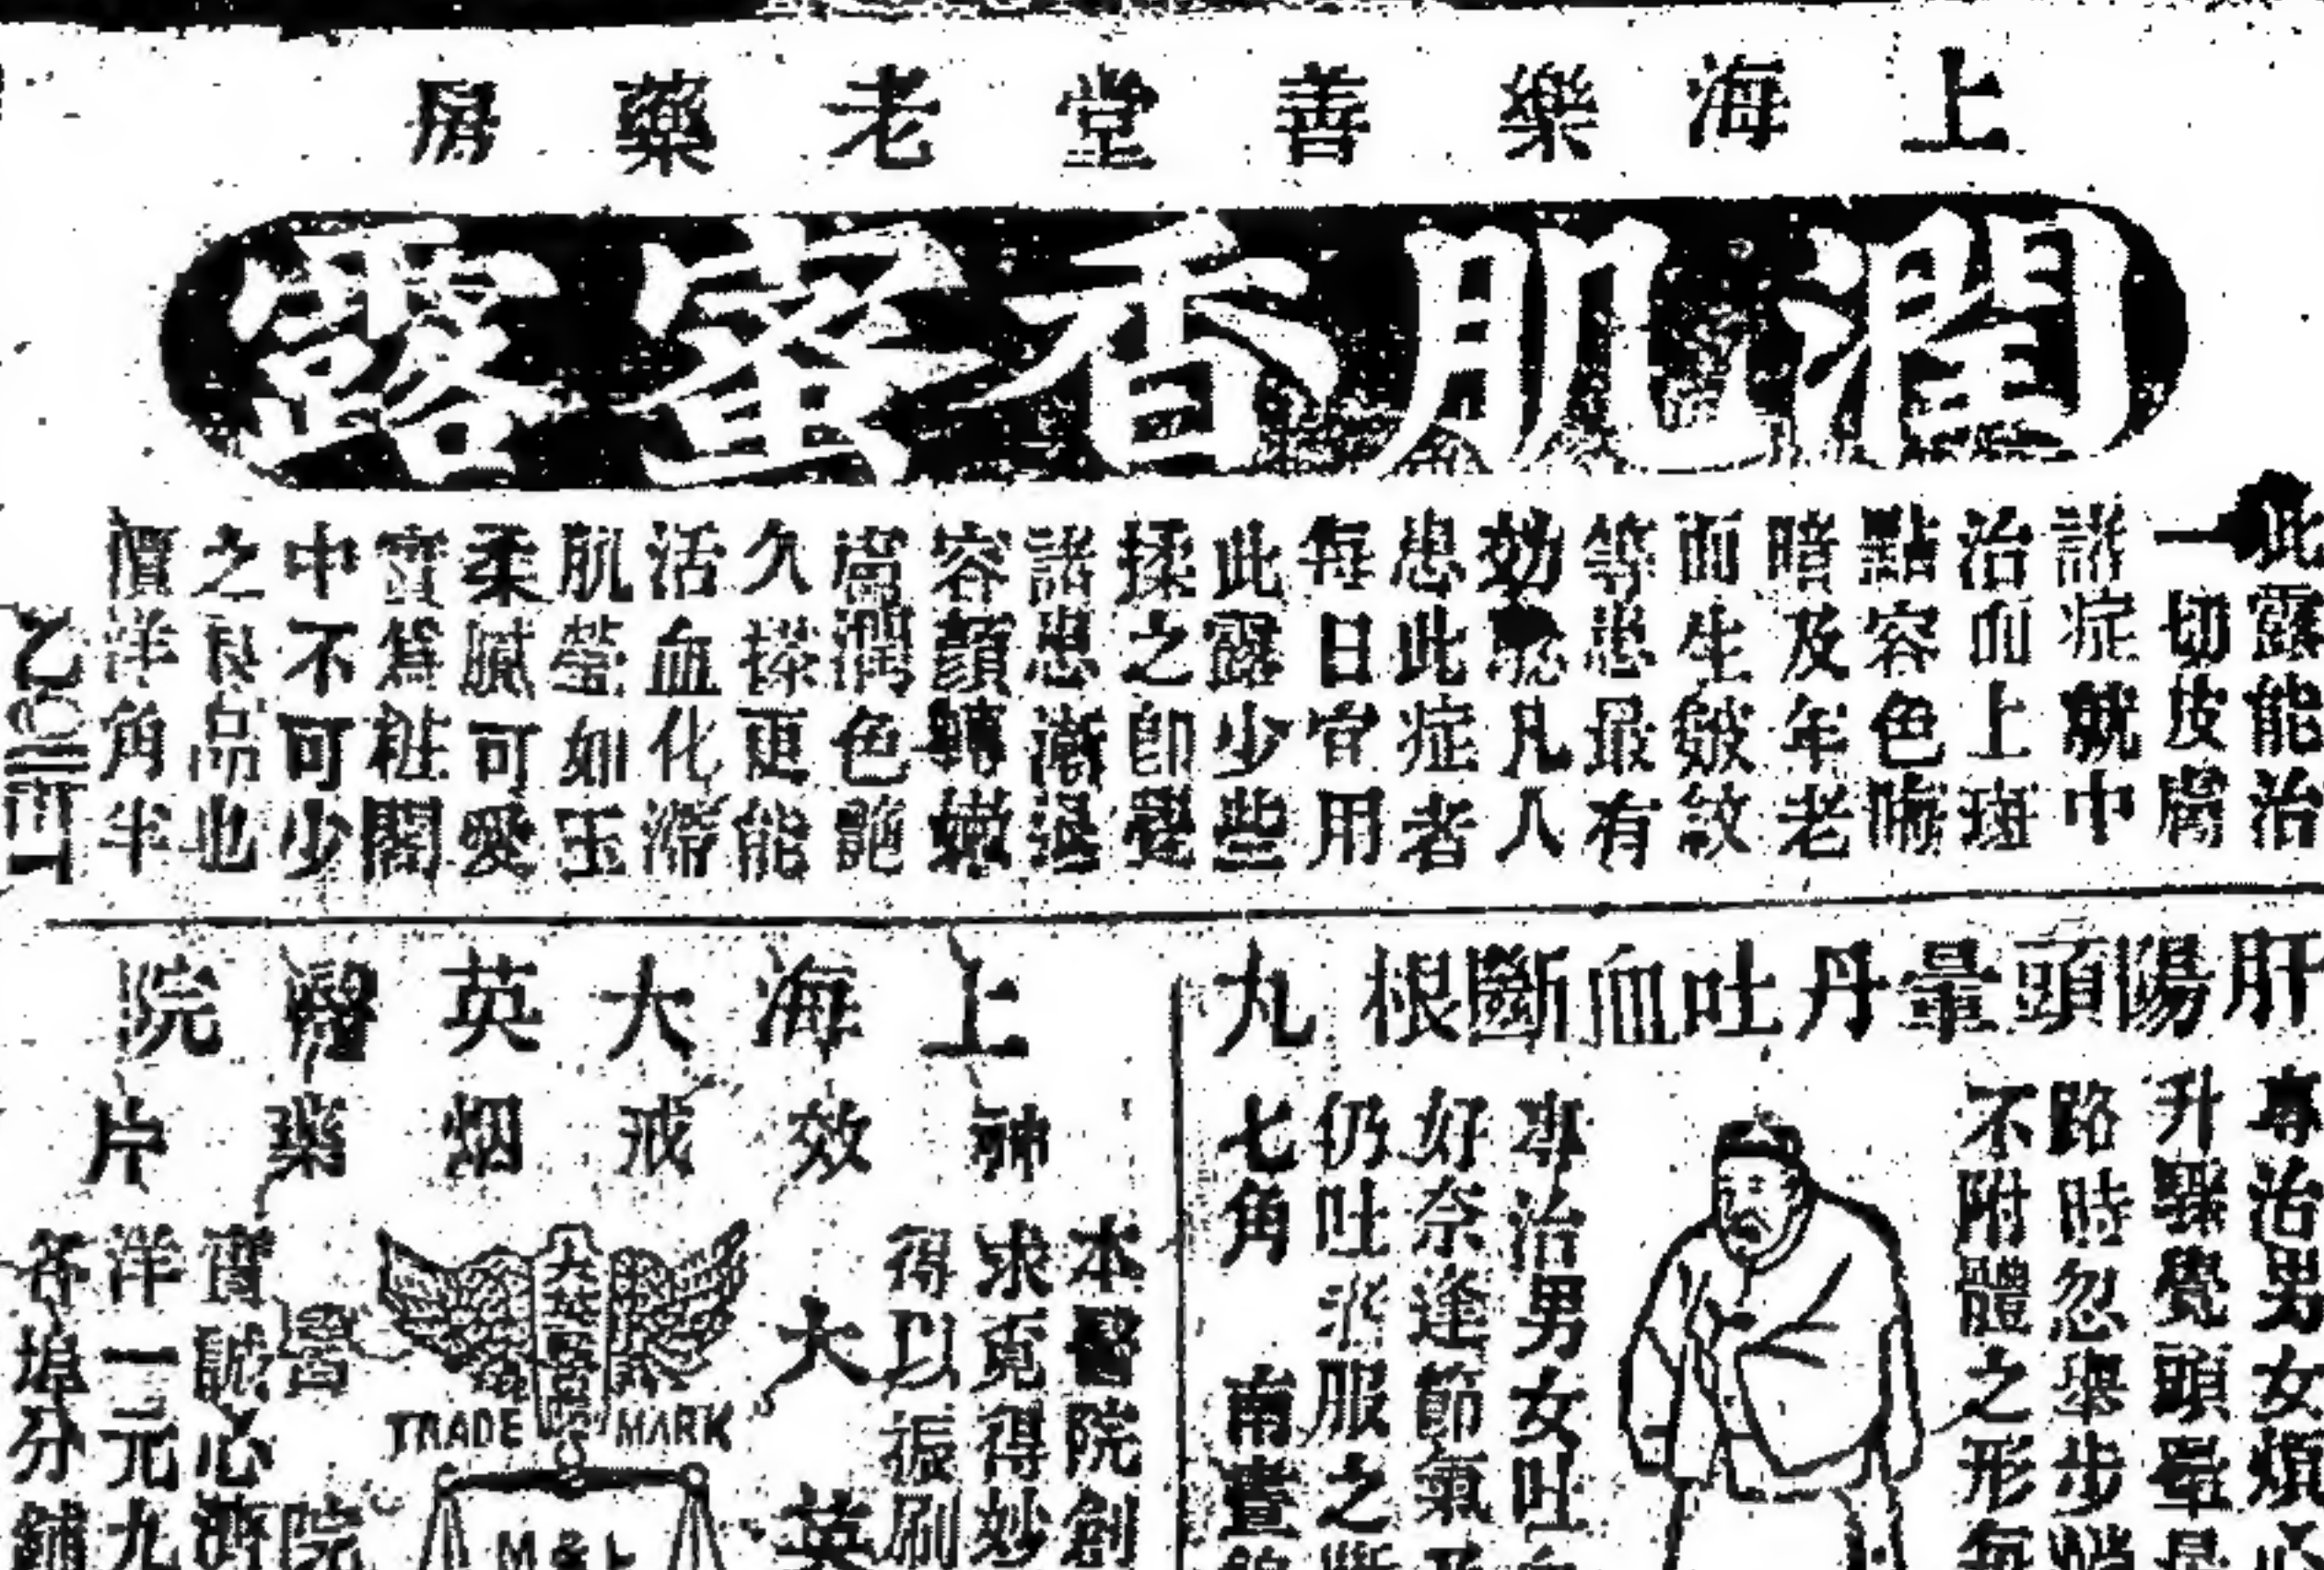 上海樂善堂老藥房
潤肌香蜜露
此露能治
一切皮膚
諸症就中
治面上斑
點容色
暗及年老
而生皴紋
等患最有
効 凡人
患此症者
每日宜用
此露少些
揉之卽覺
諸患漸退
容顏轉嫩
膚潤色艷
久搽更能
活血化滯
肌瑩如玉
柔膩可愛
實為粧閣
中不可少
之良品也
價洋角半
肝陽頭暈丹吐血斷根丸
專治男女煩心
升驟覺頭暈
路時忽舉步
不附體之形每
專治男女吐
好奈逢節氣
仍吐 服之斷
七角 南
上海大英醫院
神效戒烟藥片
本醫院創
求覓得妙
得以振刷
大英
大英醫院
TRADE MARK
M & L
醫院
實誠心濟
洋一元九
各埠分舖